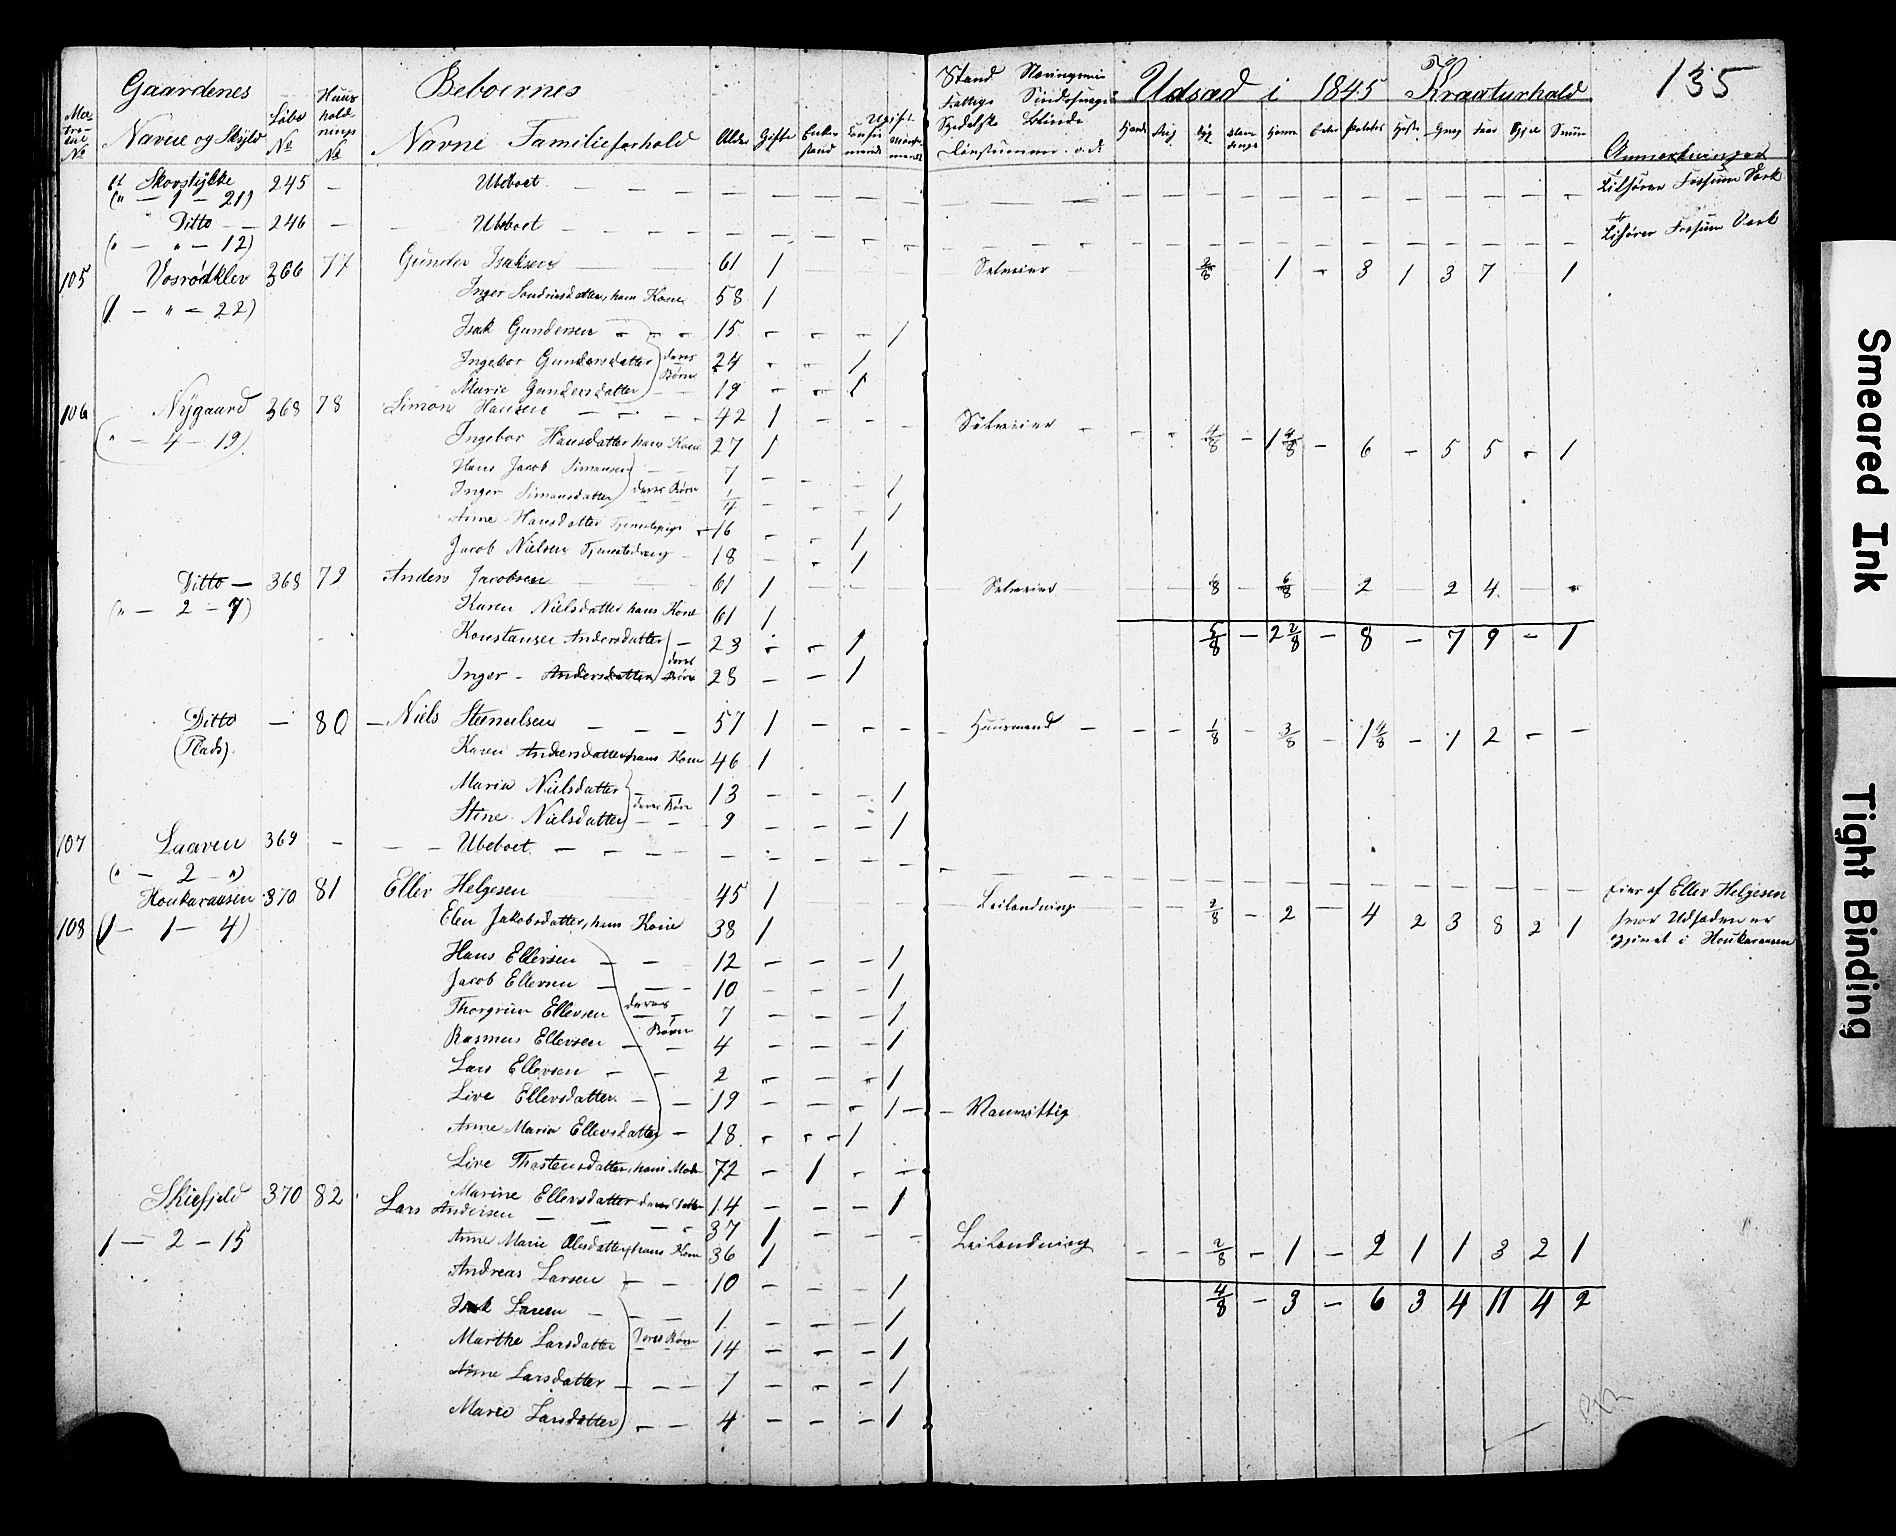 135
Gaardenes Løbe No Huus hold nings No Beboernes
Matrikul No Navne og Skyld Navne Familieforhold Alder Gifte Enke stand Ugift
Stand Næringsvei Udsæd i 1845 Kreaturhold
Fattige Sindssvage
Spedalske Blinde
Døvstumme o.d. Anmærkninger
Skovstykke 245 — Ubeboet — — — Tilhører Fossum Værk
(" — 1 — 21)
Ditto — 246 — Ubeboet — — — Tilhører Fossum Værk
(" — " — 12)
105 Vosrødklev 366 77 Gunder Isaksen 61 1 Selveier 3/8 1 - 3 1 3 7 1
(1 — " — 22) Inger Sondresdatter, hans Kone 58 1
Isak Gundersen 15 - - - 1
Ingebor Gundersdatter deres 24 - - 1
Marie Gundersdatter Børn 19 - - 1
106 Nygaard 368 78 Simon Hansen 42 1 - - - Selveier 4/8 - 1 4/8 - 6 - 5 5 - 1
(" — 4 — 19) Ingebor Hansdatter hans Kone 27 1
Hans Jacob Simonsen 7 - - - 1
Inger Simonsdatter deres Børn 1/4 - - - 1
Anne Hansdatter Tjenestepige 16 - - 1
Jacob Nielsen Tjenestedreng 18 - - 1
Ditto — 368 79 Anders Jacobsen 61 1 Selveier 1/8 - 6/8 - 2 - 2 4 - -
(" — 2 — 7) Karen Nielsdatter hans Kone 61 1
5/8 - 2 2/8 - 8 - 7 9 - 1
Konstanse Andersdatter 23 - - 1
Inger - Andersdatter deres Børn 28 - - 1
Ditto — 80 Niels Steneulsen 57 1 - - - Huusmand 1/8 - 3/8 - 1 4/8 - 1 2 - -
(Plads) Karen Andersdatter hans Kone 46 1
Maria Nielsdatter 13 - - - 1
Stine Nielsdatter deres Børn 9 - - - 1
107 Laaven 369 — Ubeboet — — —
(" — 2 — ")
Houkaraasen 370 81 Ellev Helgesen 45 1 Leilending 2/8 - 2 - 4 2 3 8 2 1 Eies af Ellev Helgesen
108 (1 — 1 — 4) Elen Jakobsdatter, hans Kone 38 1 hvor Udsæden er
opgivet i Houkaraasen
Hans Ellevsen 12 - - - 1
Jacob Ellevsen 10 - - - 1
Thorgrim Ellevsen deres 7 - - - 1
Rasmus Ellevsen Børn 4 - - - 1
Lars Ellevsen 2 - - - 1
Live Ellevsdatter 19 - - - 1 Vanvittig
Anne Maria Ellevsdatter 18 - - 1
Live Thostensdatter, hans Moder 72 - 1 - -
Marine Ellevsdatter deres Datter 14 - - - 1
Skiefjeld 370 82 Lars Andersen 37 1 - - -
1 — 2 — 15 Anne Marie Olesdatter, hans Kone 36 1 Leilending 2/8 - 1 - 2 1 1 3 2 1
Andreas Larsen 10 - - - 1
4/8 - 3 - 6 3 4 11 4 2
Isak Larsen 1 - - - 1
Marthe Larsdatter Deres Børn 14 - - - 1
Anne Larsdatter 7 - - - 1
Marie Larsdatter 4 - - - 1
Smeared Ink
Tight Binding